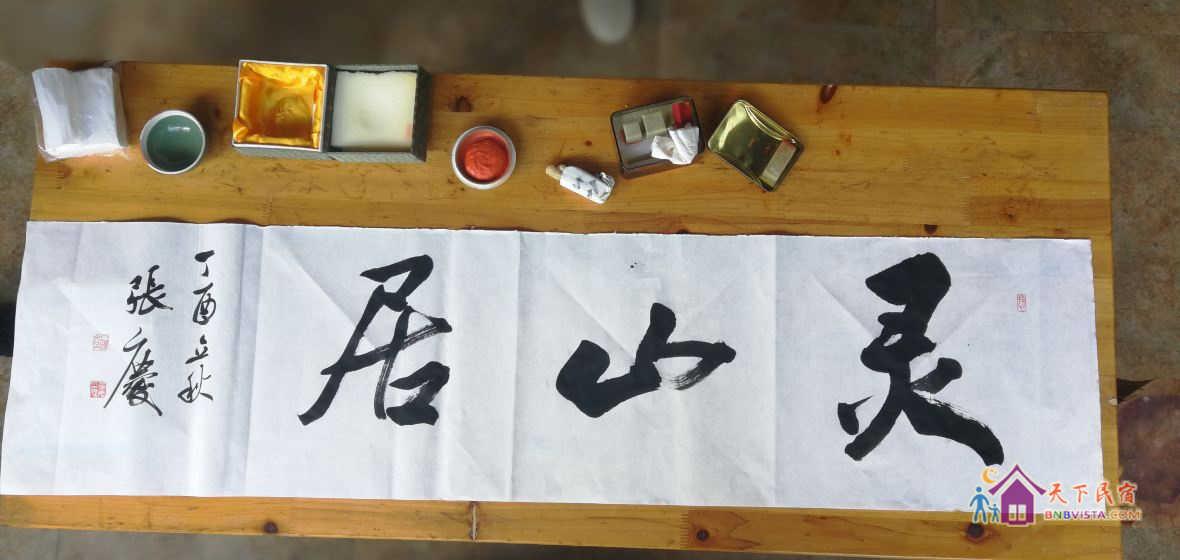 灵山居
丁酉立秋
張慶
天下民宿
BNBVISTA.COM